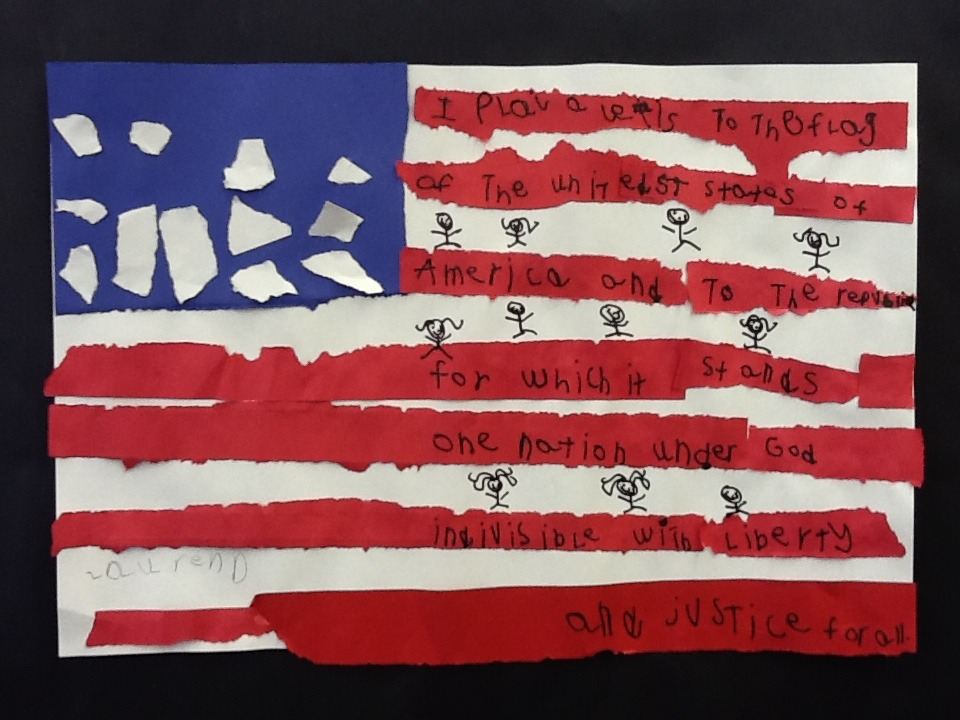 I Plai a to The flag
of The unitedst states of
America and To The republic
for which it stands
one nation under God
indivisible with Liberty
laurenD
and justice for all.